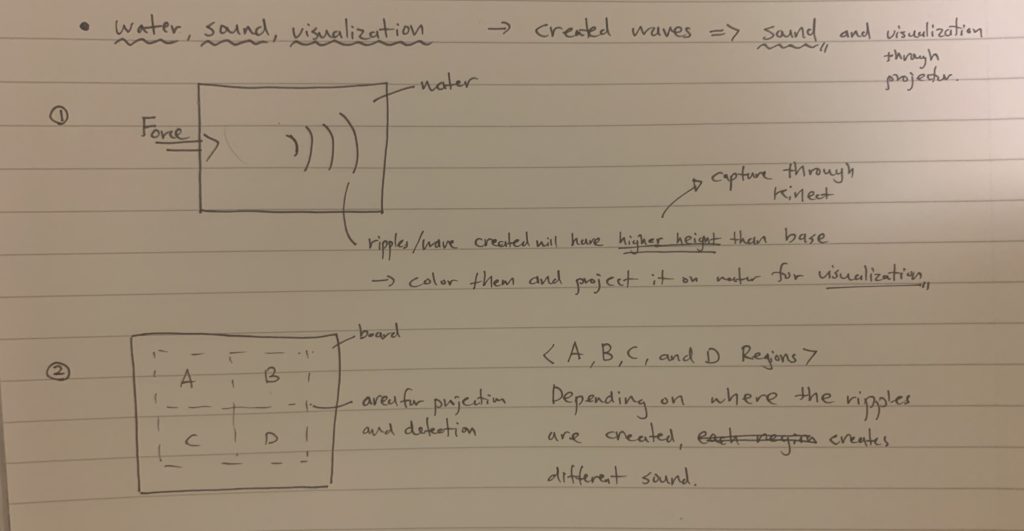 • water, sound, visualization → created waves => sound and visualization
through
projector.
①
water
Force
capture through
Kinect
ripples/wave created will have higher height than base
→ color them and project it on water for visualization
②
board
A B
C D
area for projection
and detection
< A, B, C, and D Regions >
Depending on where the ripples
are created, each region creates
different sound.